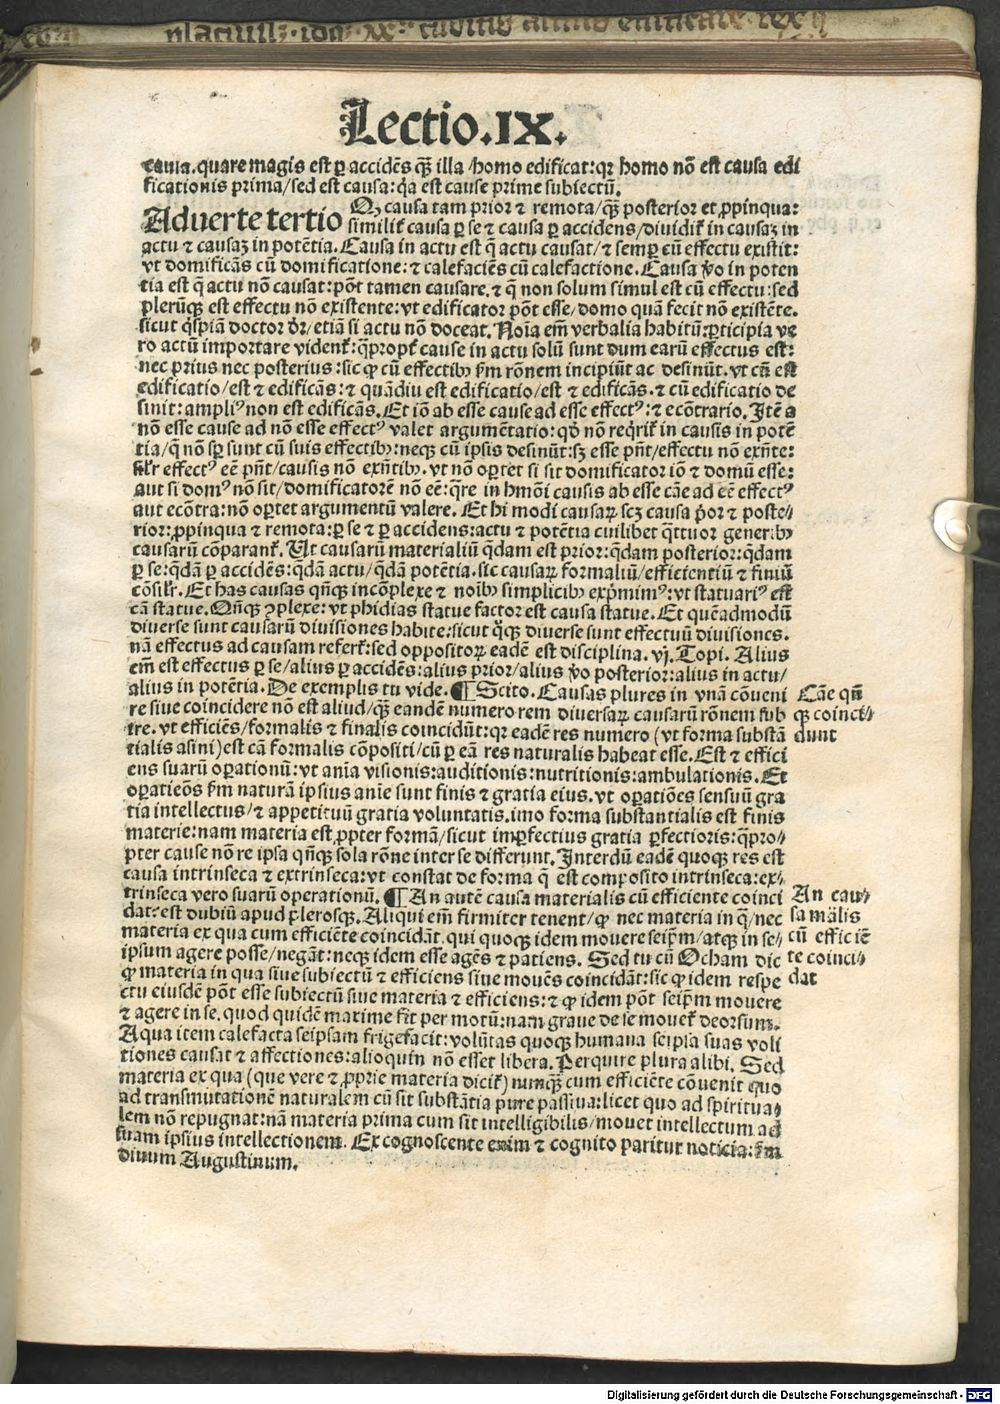 Lectio.IX.
causa.quare magis est ꝑ accidēs qȝ illa/homo edificat:qꝛ homo nō est causa edi
ficationis prima/sed est causa:q̄a est cause prime subiectū.
Aduerte tertio Qꝫ causa tam prior ⁊ remota/qȝ posterior et ꝓpinqua:
similit̄ causa ꝑ se ⁊ causa ꝑ accidens/diuidit̄ in causaȝ in
actu ⁊ causaȝ in potētia.Causa in actu est q̄ actu causat/⁊ semꝑ cū effectu existit:
vt domificās cū domificatione:⁊ calefaciēs cū calefactione.Causa v̄o in poten
tia est q̄ actu nō causat:pōt tamen causare.⁊ q̄ non solum simul est cū effectu:sed
plerūqȝ est effectu nō existente:vt edificator pōt esse/domo quā fecit nō existēte.
sicut q̇spiā doctor dr̄/etiā si actu nō doceat.Noīa em̄ verbalia habitū:ꝑticipia ve
ro actū importare vident̄:q̄propt̄ cause in actu solū sunt dum earū effectus est:
nec prius nec posterius:sic ꝙ cū effectibꝰ s̄m rōnem incipiūt ac desinūt.vt cū est
edificatio/est ⁊ edificās:⁊ quādiu est edificatio/est ⁊ edificās.⁊ cū edificatio de
sinit:ampliꝰ non est edificās.Et iō ab esse cause ad esse effectꝰ:⁊ ecōtrario.Itē a
nō esse cause ad nō esse effectꝰ valet argumētatio:qd̄ nō reqͥrit̄ in causis in potē
tia/q̄ nō sꝑ sunt cū suis effectibꝰ:neqȝ cū ipsis desinūt:sȝ esse pn̄t/effectu nō exn̄te:
silr̄ effectꝰ eē pn̄t/causis nō exn̄tibꝰ.vt nō oꝑtet si sit domificator iō ⁊ domū esse:
aut si domꝰ nō sit/domificatorē nō eē:q̄re in hmōi causis ab esse cāe ad eē effectꝰ
aut ecōtra:nō oꝑtet argumentū valere.Et hi modi causaꝝ scȝ causa p̄or ⁊ poste⸗
rior:ꝓpinqua ⁊ remota:ꝑ se ⁊ ꝑ accidens:actu ⁊ potētia cuilibet q̄ttuor generibꝰ
causarū cōparant̄.Ut causarū materialiū q̄dam est prior:q̄dam posterior:q̄dam
ꝑ se:q̄dā ꝑ accidēs:q̄dā actu/q̄dā potētia.sic causaꝝ formaliū/efficientiū ⁊ finiū
cōsilr̄.Et has causas qn̄qȝ incōplexe ⁊ noībꝰ simplicibꝰ exp̄mimꝰ:vt statuariꝰ est
cā statue.Qn̄qȝ ꝯplexe:vt phidias statue factor est causa statue.Et quēadmodū
diuerse sunt causarū diuisiones habite:sicut q̊qȝ diuerse sunt effectuū diuisiones.
nā effectus ad causam refert̄:sed oppositoꝝ eadē est disciplina.vj.Topi.Alius
em̄ est effectus ꝑ se/alius ꝑ accidēs:alius prior/alius v̄o posterior:alius in actu/
alius in potētia.De exemplis tu vide.¶ Scito.Causas plures in vnā cōueni
re siue coincidere nō est aliud/qȝ eandē numero rem diuersaꝝ causarū rōnem sub
ire.vt efficiēs/formalis ⁊ finalis coincidūt:qꝛ eadē res numero (vt forma substā
tialis asini)est cā formalis cōpositi/cū ꝑ eā res naturalis habeat esse.Est ⁊ effici
ens suarū oꝑationū:vt anīa visionis:auditionis:nutritionis:ambulationis.Et
oꝑatiōes s̄m naturā ipsius anīe sunt finis ⁊ gratia eius.vt oꝑatiōes sensuū gra
tia intellectus/⁊ appetituū gratia voluntatis.imo forma substantialis est finis
materie:nam materia est ꝓpter formā/sicut imꝑfectius gratia ꝑfectioris:q̄pro⸗
pter cause nō re ipsa qn̄qȝ sola rōne inter se differunt.Interdū eadē quoqȝ res est
causa intrinseca ⁊ extrinseca:vt constat de forma q̄ est composito intrinseca:ex⸗
trinseca vero suarū operationū.¶ An autē causa materialis cū efficiente coinci
dat:est dubiū apud pleros​qȝ.Aliqui em̄ firmiter tenent/ꝙ nec materia in q̄/nec
materia ex qua cum efficiēte coincidāt.qui quoqȝ idem mouere seip̄m/atqȝ in se⸗
ipsum agere posse/negāt:neqȝ idem esse agēs ⁊ patiens. Sed tu cū Ocham dic
ꝙ materia in qua siue subiectū ⁊ efficiens siue mouēs coincidāt:sic ꝙ idem respe
ctu eiusdē pōt esse subiectū siue materia ⁊ efficiens:⁊ ꝙ idem pōt seip̄m mouere
⁊ agere in se.quod quidē maxime fit per motū:nam graue de se mouet̄ deorsum.
Aqua item calefacta seipsam frigefacit:volūtas quoqȝ humana seipsa suas voli
tiones causat ⁊ affectiones:alioquin nō esset libera.Perquire plura alibi. Sed
materia ex qua (que vere ⁊ ꝓprie materia dicit̄) nunqȝ cum efficiēte cōuenit quo
ad transmutationē naturalem cū sit substātia pure passiua:licet quo ad spiritua⸗
lem nō repugnat:nā materia prima cum sit intelligibilis/mouet intellectum ad
suam ipsius intellectionem. Ex cognoscente enim ⁊ cognito paritur noticia:s̄m
diuum Augustinum.
Cāe qn̄
qȝ coinci⸗
dunt
An cau⸗
sa mālis
cū efficiē
te coinci⸗
dat
Digitalisierung gefördert durch die Deutsche Forschungsgemeinschaft - DFG